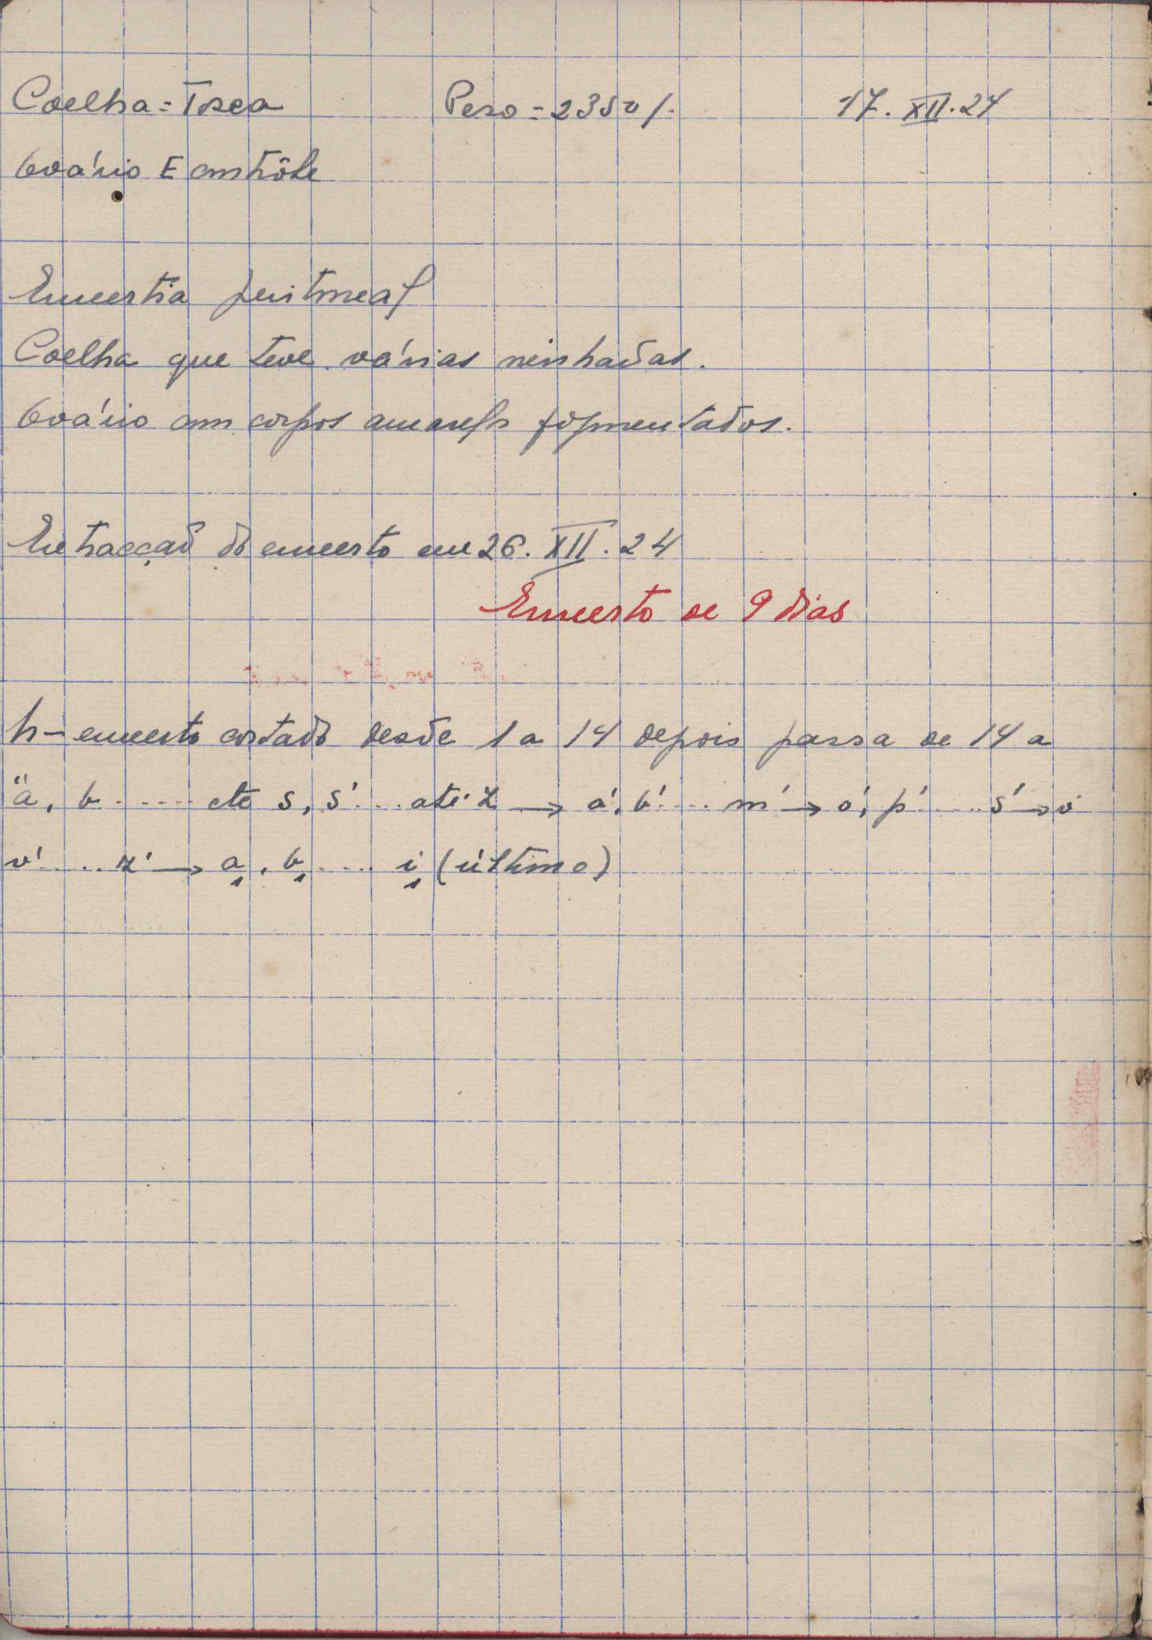 Coelha = Tosca Peso = 2350 g. 17. XII. 24
Ovário E contrôle
Enxertia peritoneal
Coelha que teve várias ninhadas.
Ovário com corpos amarelos pigmentados.
Extracção do enxerto em 26. XII. 24
Enxerto de 9 dias
h - enxerto cortado desde 1 a 14 depois passa de 14 a
a, b ..... etc s, s' ... até z → a', b' .... m' → o', p' .... s' → v
v' ... z' → a, b, .... i (último)